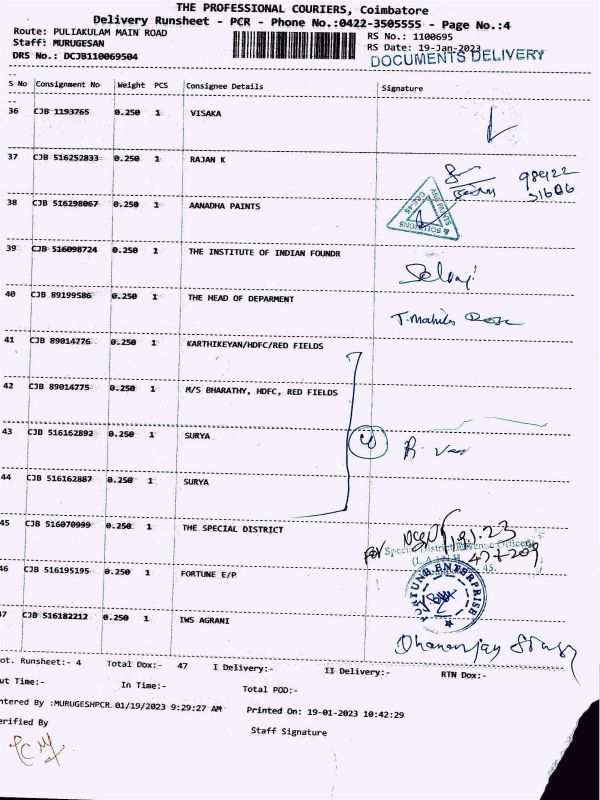 THE PROFESSIONAL COURIERS, Coimbatore
Delivery Runsheet - PCR - Phone No.:0422-3505555 - Page No.:4
Route: PULIAKULAM MAIN ROAD RS No.: 1100695
Staff: MURUGESAN RS Date: 19-Jan-2023
DRS No.: DCJB110069504 DOCUMENTS DELIVERY
S No Consignment No Weight PCS Consignee Details Signature
36 CJB 1193765 0.250 1 VISAKA
37 CJB 516252833 0.250 1 RAJAN K
98422
38 CJB 516298067 0.250 1 AANADHA PAINTS
39 CJB 516098724 0.250 1 THE INSTITUTE OF INDIAN FOUNDR
Selvaji
40 CJB 89199586 0.250 1 THE HEAD OF DEPARMENT
41 CJB 89014776 0.250 1 KARTHIKEYAN/HDFC/RED FIELDS
42 CJB 89014775 0.250 1 M/S BHARATHY, HDFC, RED FIELDS
43 CJB 516162892 0.250 1 SURYA
44 CJB 516162887 0.250 1 SURYA
45 CJB 516070999 0.250 1 THE SPECIAL DISTRICT
19.1.23
46 CJB 516195195 0.250 1 FORTUNE E/P
FORTUNE ENTERPRISE
47 CJB 516182212 0.250 1 IWS AGRANI
Dhananjay Singh
ot. Runsheet:- 4 Total Dox:- 47 I Delivery:- II Delivery:- RTN Dox:-
ut Time:- In Time:- Total POD:-
ntered By :MURUGESHPCR 01/19/2023 9:29:27 AM Printed On: 19-01-2023 10:42:29
erified By Staff Signature